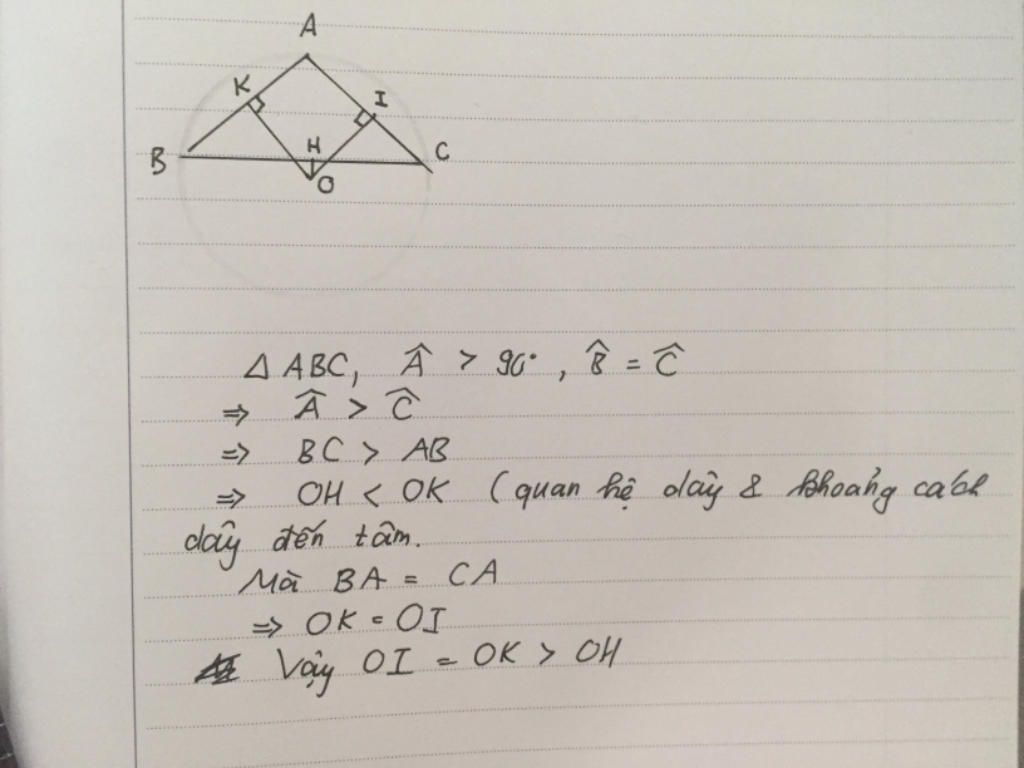 A
K
I
B
H
C
O
Δ ABC, Â > 90°, B̂ = Ĉ
⇒ Â > Ĉ
⇒ BC > AB
⇒ OH < OK (quan hệ dây & khoảng cách
dây đến tâm.
Mà BA = CA
⇒ OK = OI
Vậy OI = OK > OH